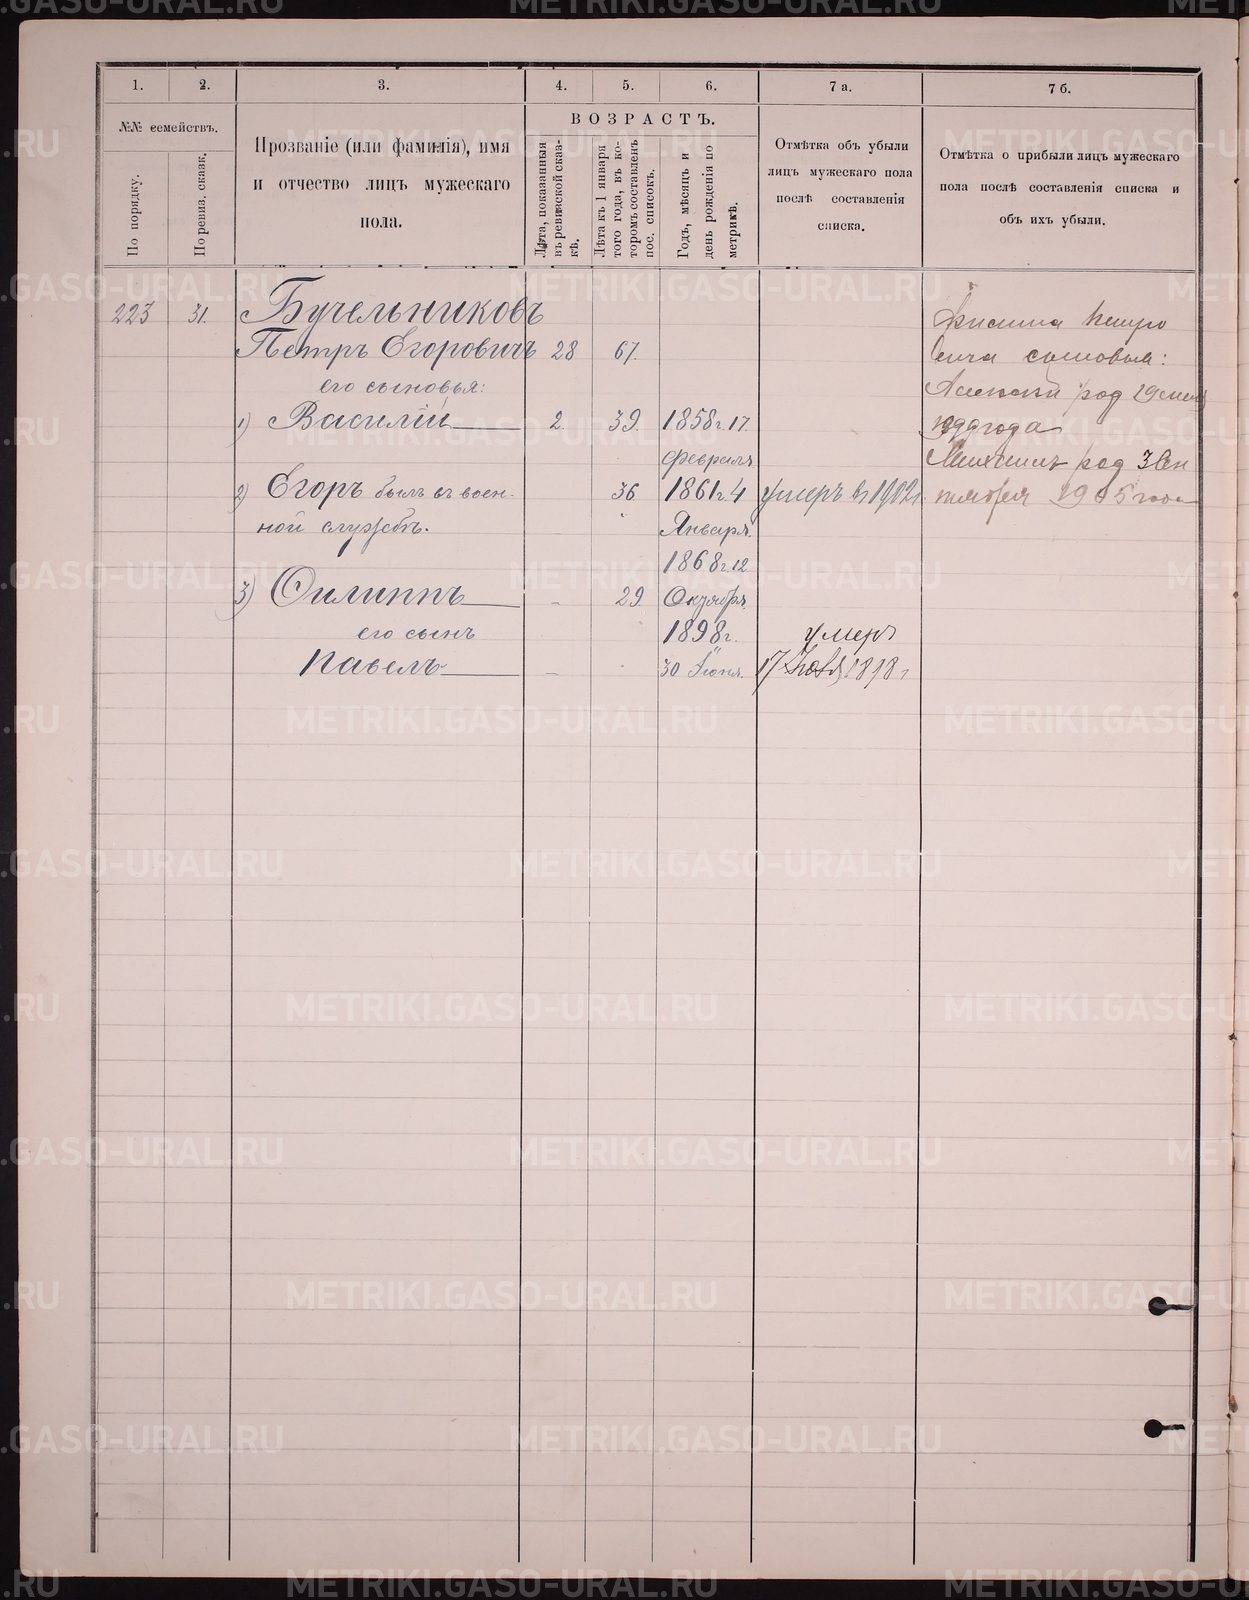 1. 2. 3. 4. 5. 6. 7 а. 7 б.
№№ семействъ.
По порядку.
По ревиз. сказк.
Прозваніе (или фамилія), имя
и отчество лицъ мужескаго
пола.
ВОЗРАСТЪ.
Лѣта, показанныя
въ ревизской сказ-
кѣ.
Лѣта къ 1 января
того года, въ ко-
торомъ составленъ
пос. списокъ.
Годъ, мѣсяцъ и
день рожденія по
метрикѣ.
Отмѣтка объ убыли
лицъ мужескаго пола
послѣ составленія
списка.
Отмѣтка о прибыли лицъ мужескаго
пола послѣ составленія списка и
объ ихъ убыли.
223 31. Бучельниковъ
Петръ Егоровичъ 28 67.
его сыновья:
1) Василій 2. 39. 1858 г. 17.
Февраля
2) Егоръ былъ въ воен- 36 1861 г. 4 умеръ въ 1902 г.
ной службѣ. Января.
1868 г. 12
3) Филиппъ - 29 Октября.
его сынъ 1898 г. умеръ
Павелъ - 30 Іюня. 17 1898 г.
Филипа Петро
вича сыновья:
Алексей род 29
года
Михаилъ род 3 Сен
тября 1905 года
METRIKI.GASO-URAL.RU